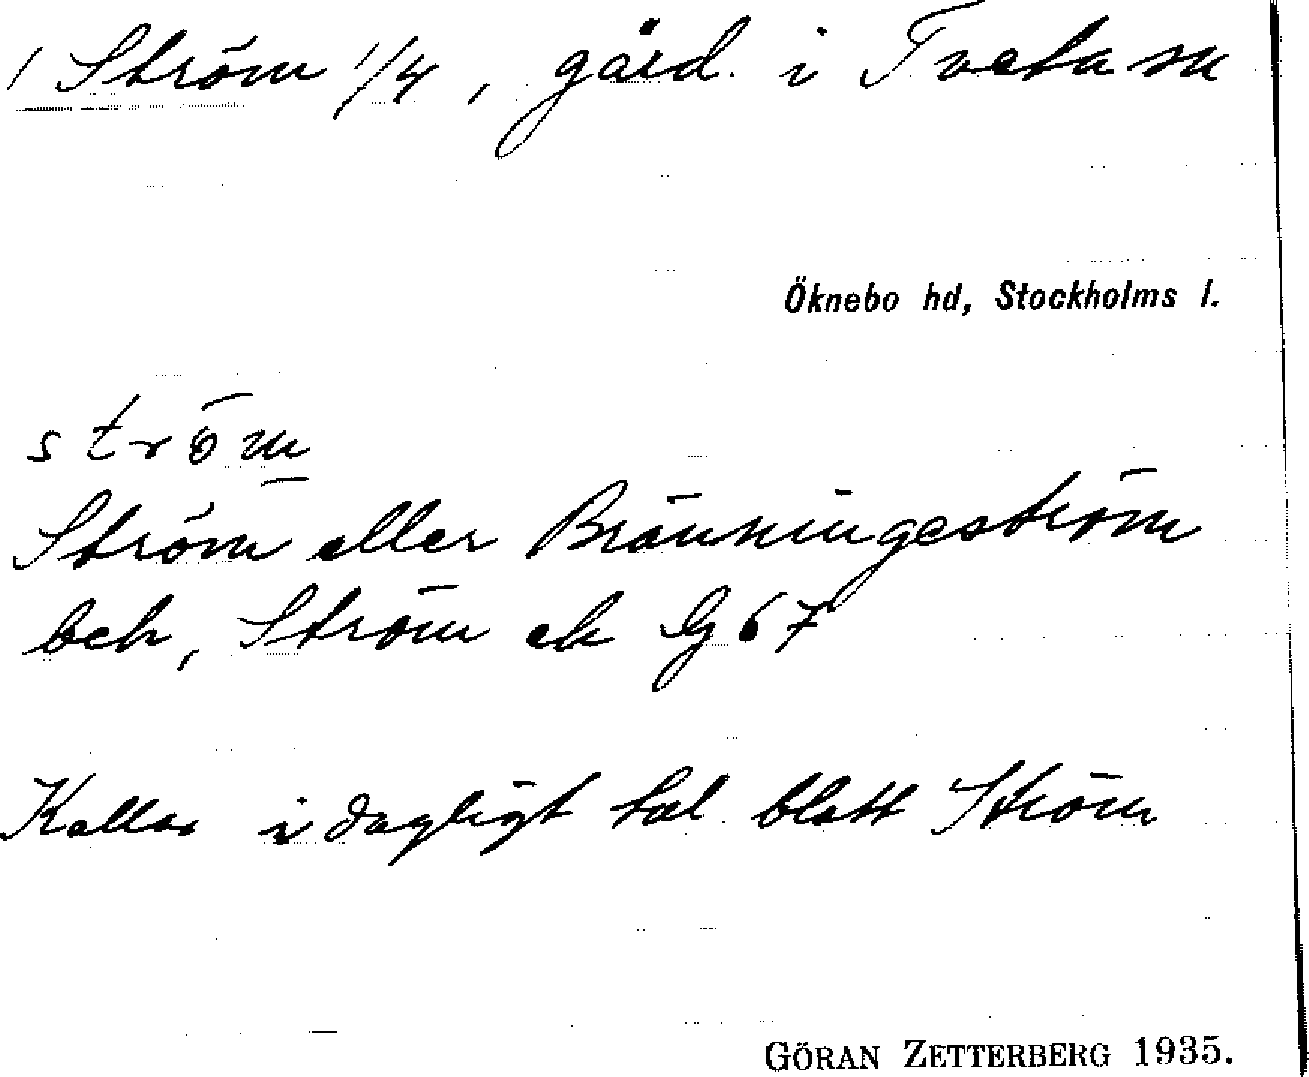 1 Ström 1/4, gård i Tveta sn
Öknebo hd, Stockholms l.
ström
Ström eller Bränningeström
beh, Ström ek G 67
Kallas i dagligt tal blott Ström
GÖRAN ZETTERBERG 1935.